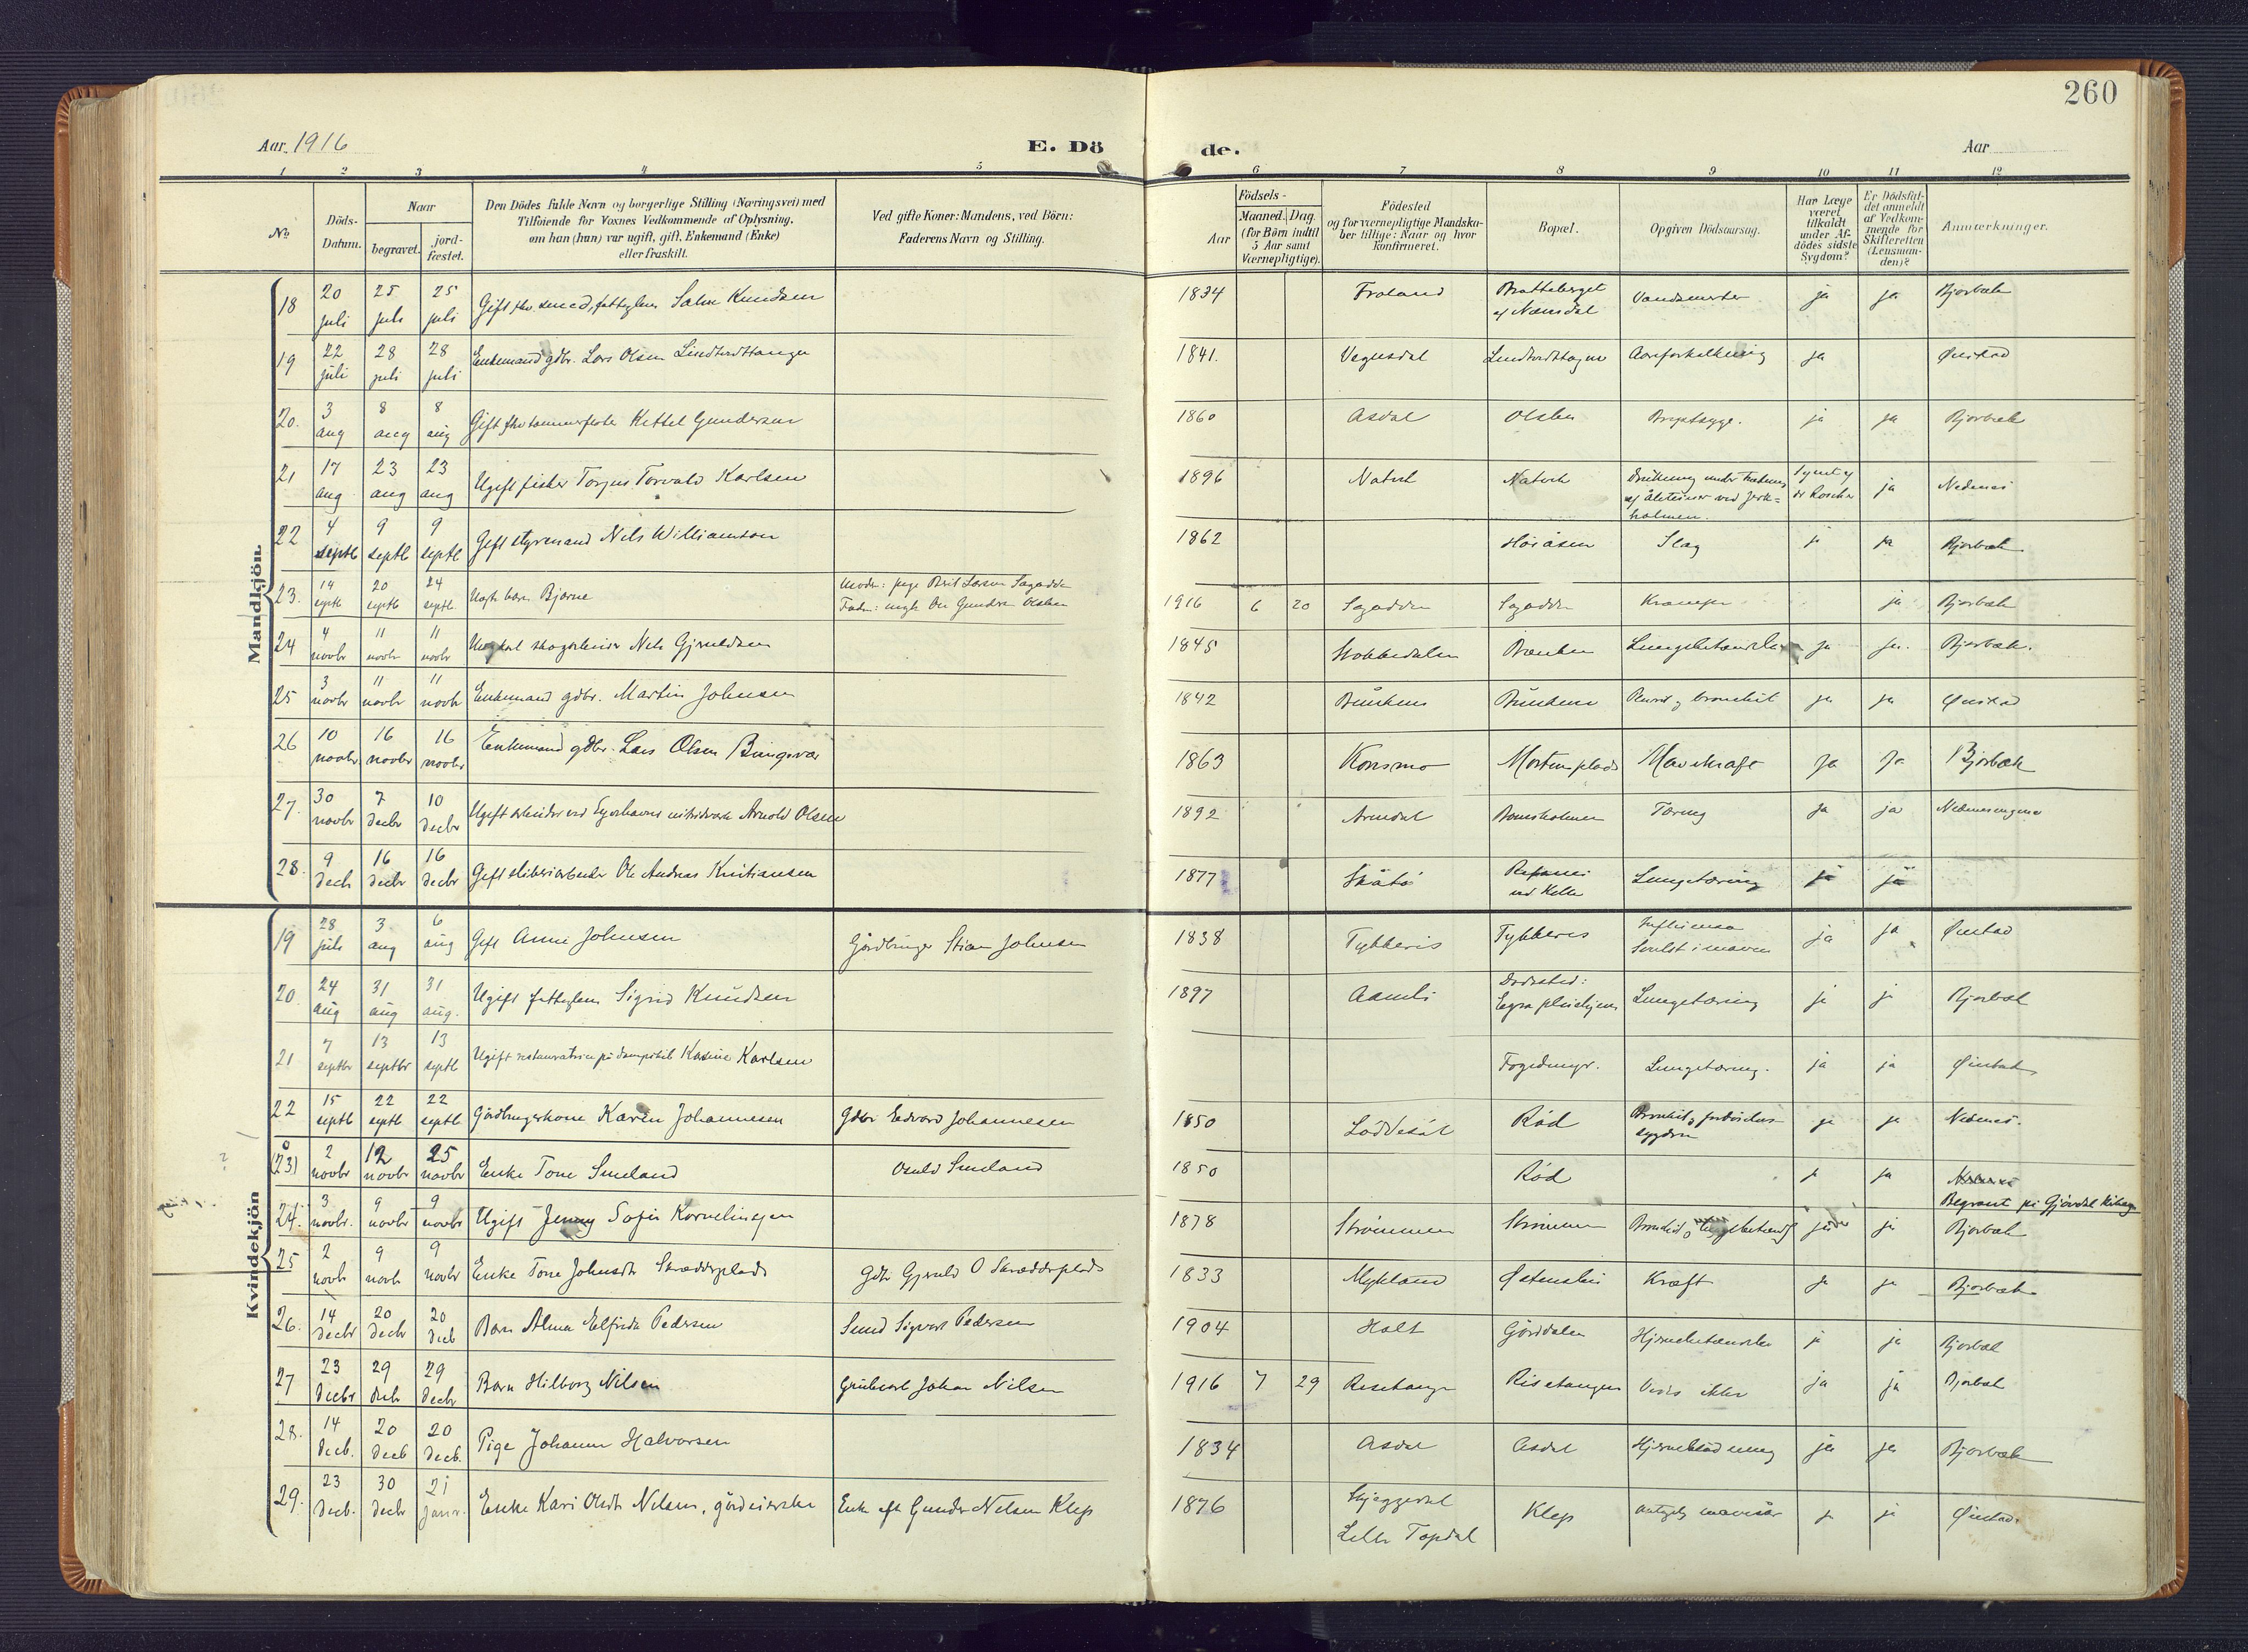 260
Aar 1916
E. Dö
de.
Aar
1 2 3 4 5 6 7 8 9 10 11 12
No
Döds-Datum.
Naar
begravet.
jord-fæstet.
Den Dödes fulde Navn og borgerlige Stilling (Næringsvei) med
Tilföiende for Voxnes Vedkommende af Oplysning,
om han (hun) var ugift, gift, Enkemand (Enke)
eller fraskilt.
Ved gifte Koner: Mandens, ved Börn:
Faderens Navn og Stilling.
Aar
Födsels-
Maaned. Dag.
(for Börn indtil
5 Aar samt
Værnepligtige).
Födested
og for værnepligtige Mandska-
ber tillige: Naar og hvor
konfirmeret.
Bopæl.
Opgiven Dödsaarsag.
Har Læge
været
tilkaldt
under Af-
dödes sidste
Sygdom?
Er Dödsfal-
det anmeldt
af Vedkom-
mende for
Skifteretten
(Lensman-
den)?
Anmærkninger.
Mandkjön.
18 20 juli 25 juli 25 juli Gift fhv. smed, fattiglem Salve Knudsen 1834 Froland Bratteberget ja ja Bjorbæk
19 22 juli 28 juli 28 juli Enkemand gdbr. Lars Olsen 1841. Vegusdal Aareforkalkning ja Øiestad
20. 3 aug 8 aug 8 aug Gift fhv tømmerfløter Kittel Gundersen 1860 Asdal Brystsyge. ja ja Bjorbæk
21 17 aug 23 aug 23 aug Ugift fisker Torjus Torvald Karlsen 1896 Natvik Natvik Drukning under trækning af åleteiner ved holmen. ja Nedenes
22 4 septb 9 septb 9 septb Gift styrmand Nils Williamson 1862 Høiåsen Slag ja ja Bjorbæk
23. 14 septb 20 septb 24 septb. Uægte barn Bjarne Moder: pige Berit Larsen Fader: Gundersen 1916 6 20 Krampe ja Bjorbæk
24 4 novbr 11 novbr 11 novbr Nils Gjeruldsen 1845 Lungebetændelse ja ja. Bjorbæk.
25 3 novbr 11 novbr 11 novbr Enkemand gdbr. Martin Johnsen 1842 ja ja Øiestad
26 10 novbr 16 novbr 16 novbr Enkemand gdbr. Lars Olsen 1863 Konsmo Mortensplads Mavekræft ja ja Bjorbæk
27. 30 novbr 7 decbr 10 decbr Ugift arbeider ved Eydehavns Arnold Olsen 1892 Arendal Tæring ja ja
28. 9 decb 16 decbr 16 decbr Gift sliberiarbeider Ole Andreas Kristiansen 1877 Skåtø Lungetæring ja ja
Kvindekjön
19 28 juli 3 aug 6 aug Gift Anne Johnsen Gårdbruger Johnsen 1838 Influensa Svulst i maven ja ja Øiestad
20. 24 aug 31 aug 31 aug. Ugift fattiglem Sigrid Knudsen 1897 Aamli Dødssted: pleiehjem Lungetæring ja ja Bjorbæk
21 7 septbr 13 septbr 13 septb Ugift restauratrice på dampskib Kasine Karlsen Fogedmyr. Lungetæring. ja ja Øiestad
22 15 septb 22 septb 22 septb Gårdbrugerkone Karen Johannesen Gdbr Edvard Johannesen 1850 Løddesøl Rød Bronkit ja ja Nedenes.
(23) 2 novbr 12 novbr 25 novbr Enke Tone Smeland Osuld Smeland 1850 Rød ja ja Begravet på Gjøvdal kirkeg.
24. 3 novbr. 9 novbr 9 novbr Ugift Jenny Sofie Korneliussen 1878 Strømmen Strømmen ja ja Bjorbæk
25 2 novb 9 novb 9 novbr Enke Tone Johnsdtr Skrædderplads Gdbr Gjeruld O Skrædderplads 1833 Mykland Østensbu Kræft ja ja Bjorbæk
26. 14 decbr 20 decbr 20 decb Barn Alma Elfrida Pedersen Smed Sigvart Pedersen 1904 Holt Gårddalen Hjernebetændelse ja ja Bjorbæk
27 23 decbr 29 decb 29 decbr Barn Hilborg Nilsen Johan Nilsen 1916 7 29 Risetangen Vides ikke ja ja Bjorbæk
28. 14 decb. 20 decb 20 decb. Pige Johanne Halvorsen 1834 Asdal Asdal Hjerneblødning ja ja Bjorbæk
29. 23 decb. 30 decbr 21 janr. Enke Kari Olsdtr Nelsen, gårdeierske Enke eft Gunder Nelsen Klep 1876 Skjeggedal Lille Topdal Klep mavesår ja ja Øiestad.